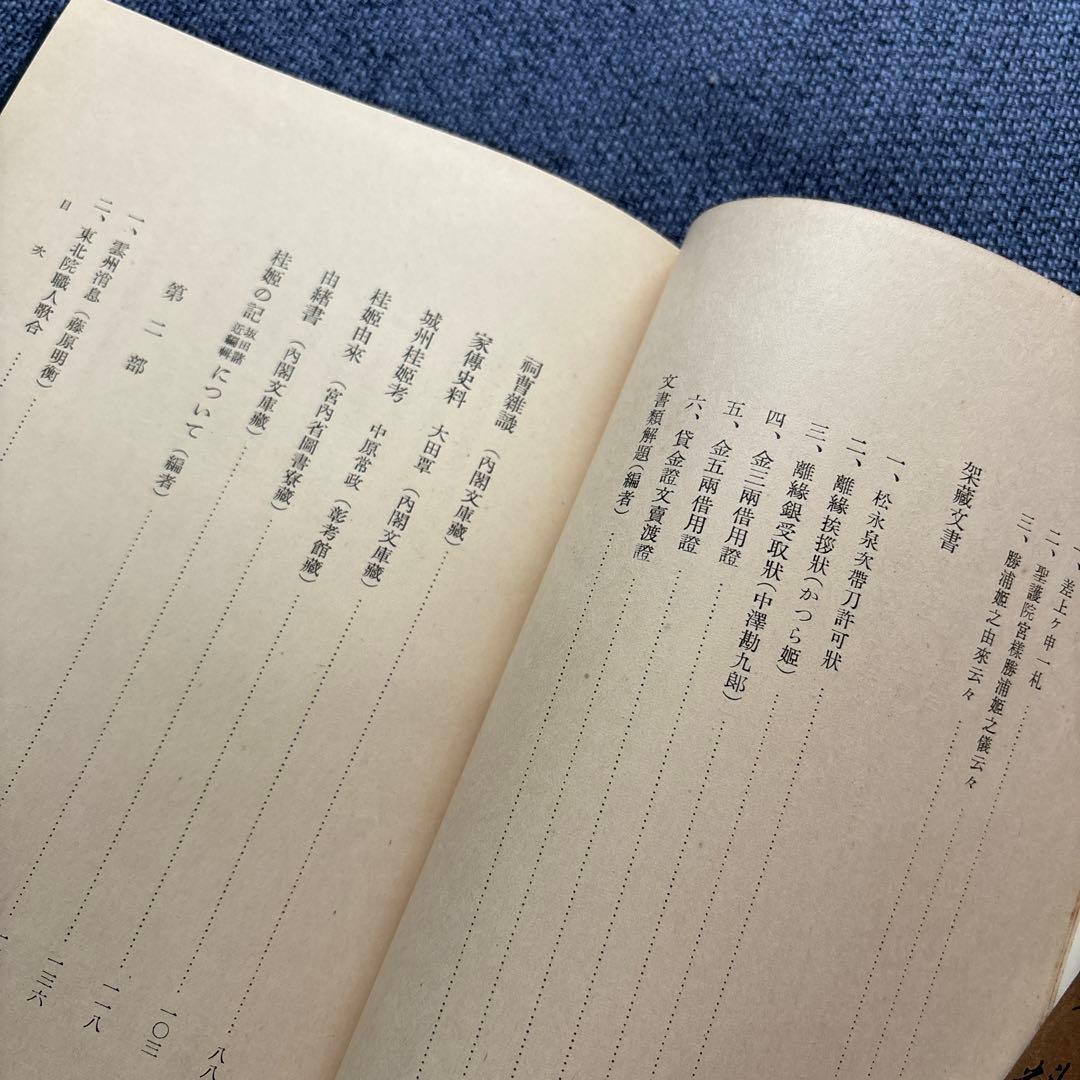 差上ヶ申一札
二、聖護院宮樣勝浦姬之儀云々
三、勝浦姬之由來云々
架藏文書
一、松永泉次帶刀許可狀
二、離緣挨拶狀(かつら姬)
三、離緣銀受取狀(中澤勘九郎)
四、金三兩借用證
五、金五兩借用證
六、貸金證文賣渡證
文書類解題(編者)
祠曹雜識(內閣文庫藏)
家傳史料 大田覃(內閣文庫藏)
城州桂姬考 中原常政(彰考館藏)
桂姬由來(宮內省圖書寮藏)
由緖書(內閣文庫藏)
桂姬の記坂田諸近編輯について(編者)
八八
第二部
一〇三
一、雲州消息(藤原明衡)
一一八
二、東北院職人歌合
一三六
目次